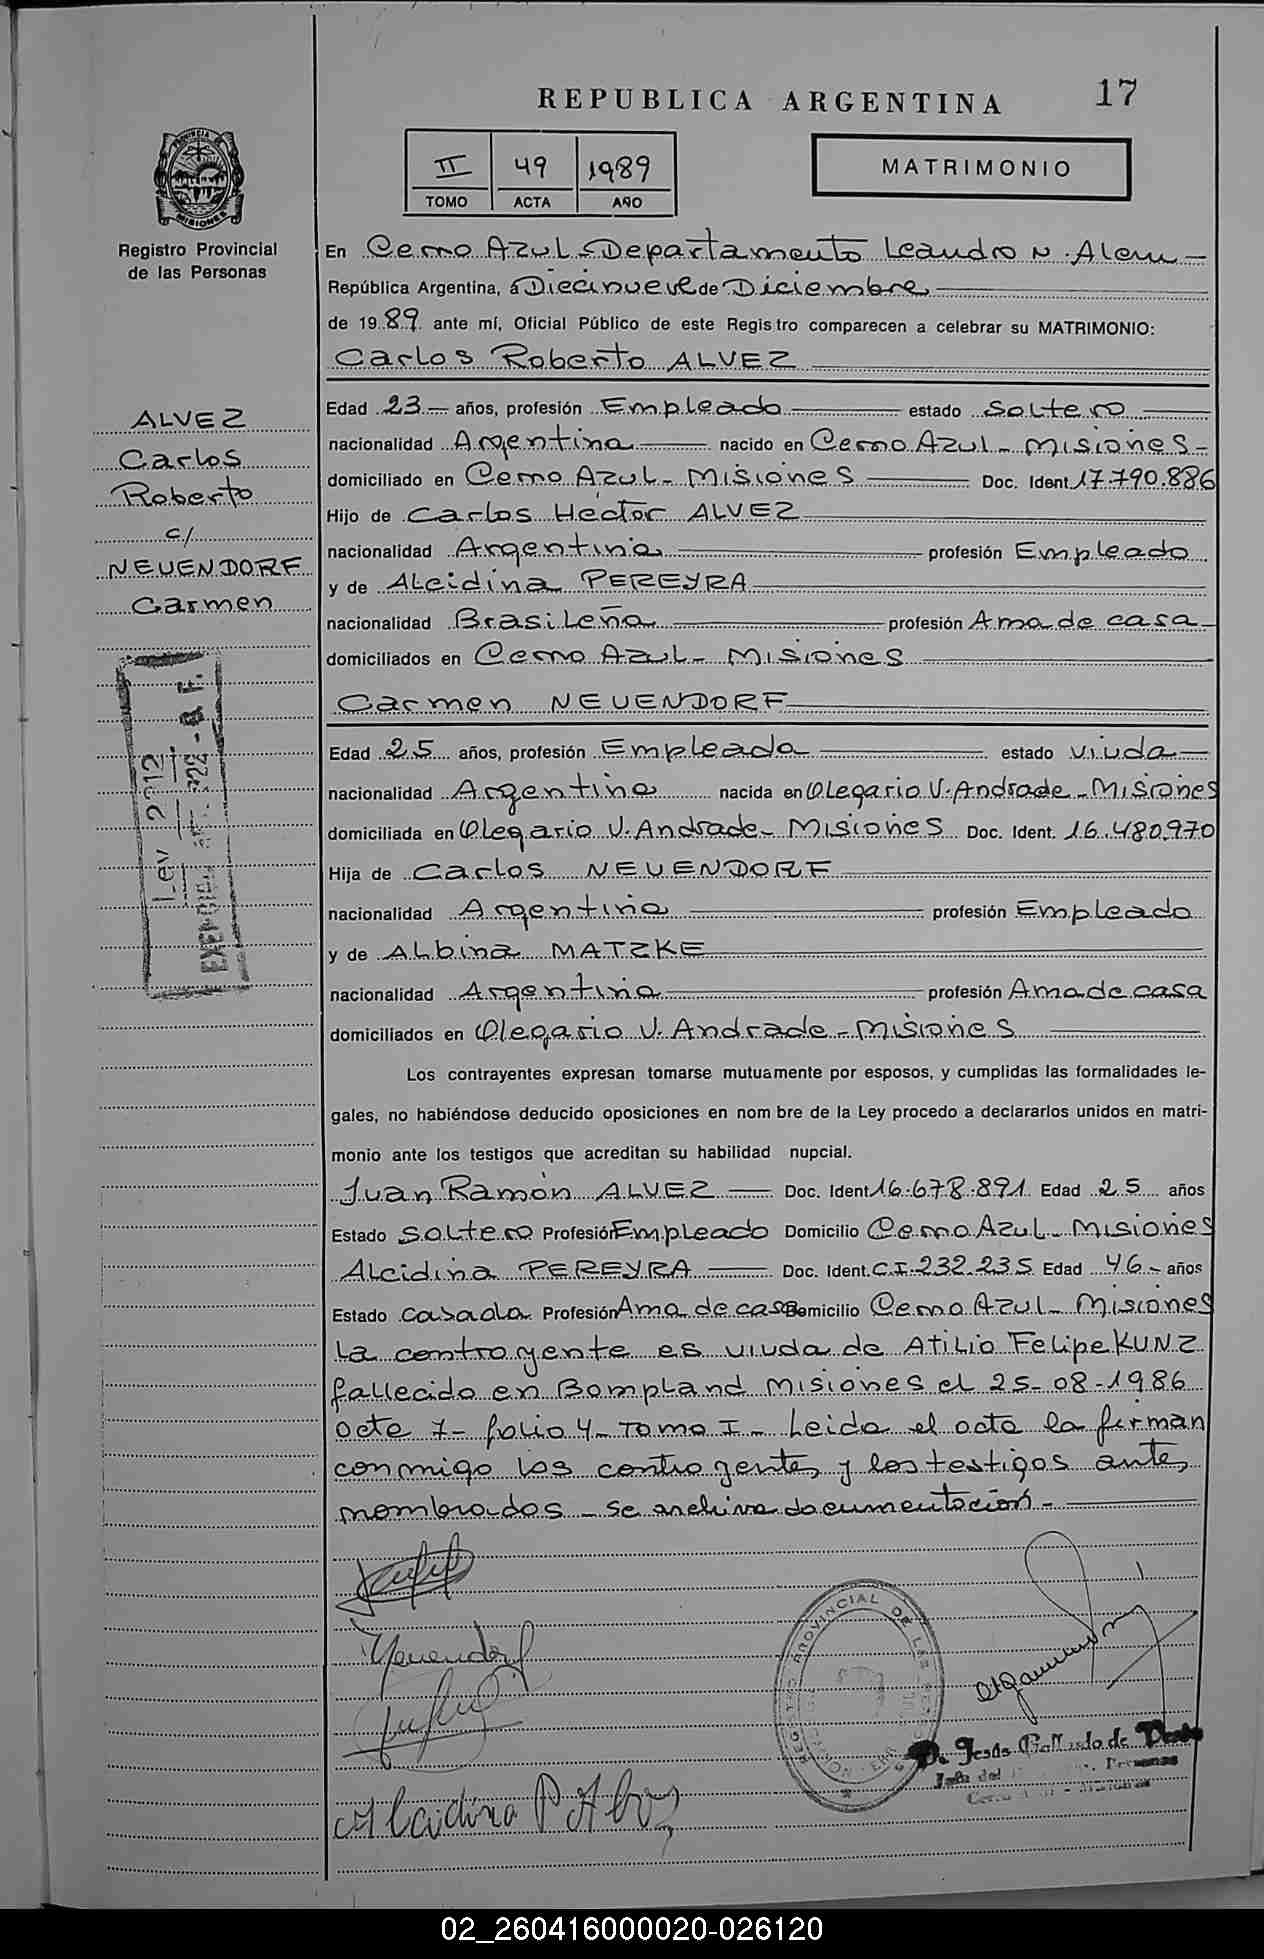 17
REPUBLICA ARGENTINA
II 49 1989
TOMO ACTA AÑO
MATRIMONIO
PROVINCIA DE
MISIONES
Registro Provincial
de las Personas
ALVEZ
Carlos
Roberto
c/
NEUENDORF
Carmen
Ley 2912
En Cerro Azul - Departamento Leandro N. Alem -
República Argentina, a Diecinueve de Diciembre
de 1989 ante mí, Oficial Público de este Registro comparecen a celebrar su MATRIMONIO:
Carlos Roberto ALVEZ
Edad 23 - años, profesión Empleado estado Soltero
nacionalidad Argentina nacido en Cerro Azul - Misiones -
domiciliado en Cerro Azul - Misiones Doc. Ident. 17.790.886
Hijo de Carlos Hector ALVEZ
nacionalidad Argentina profesión Empleado
y de Alcidina PEREYRA
nacionalidad Brasileña profesión Ama de casa
domiciliados en Cerro Azul - Misiones
Carmen NEUENDORF
Edad 25 años, profesión Empleada estado viuda
nacionalidad Argentina nacida en Olegario V. Andrade - Misiones
domiciliada en Olegario V. Andrade - Misiones Doc. Ident. 16.480.970
Hija de Carlos NEUENDORF
nacionalidad Argentina profesión Empleado
y de Albina MATZKE
nacionalidad Argentina profesión Ama de casa
domiciliados en Olegario V. Andrade - Misiones
Los contrayentes expresan tomarse mutuamente por esposos, y cumplidas las formalidades le-
gales, no habiéndose deducido oposiciones en nom bre de la Ley procedo a declararlos unidos en matri-
monio ante los testigos que acreditan su habilidad nupcial.
Juan Ramón ALVEZ Doc. Ident 16.678.891 Edad 25 años
Estado Soltero Profesión Empleado Domicilio Cerro Azul - Misiones
Alcidina PEREYRA Doc. Ident. C.I. 232.235 Edad 46 - años
Estado casada Profesión Ama de casa Domicilio Cerro Azul - Misiones
La contrayente es viuda de Atilio Felipe KUNZ
fallecido en Bompland Misiones el 25-08-1986
acta 7 - folio 4 - Tomo I - Leida el acta la firman
conmigo los contrayentes y los testigos ante,
nombrados - se archiva documentación -
Neuendorf
REGISTRO PROVINCIAL DE LAS
Alcidina P Alvez
Jesús Gallardo de
02_260416000020-026120